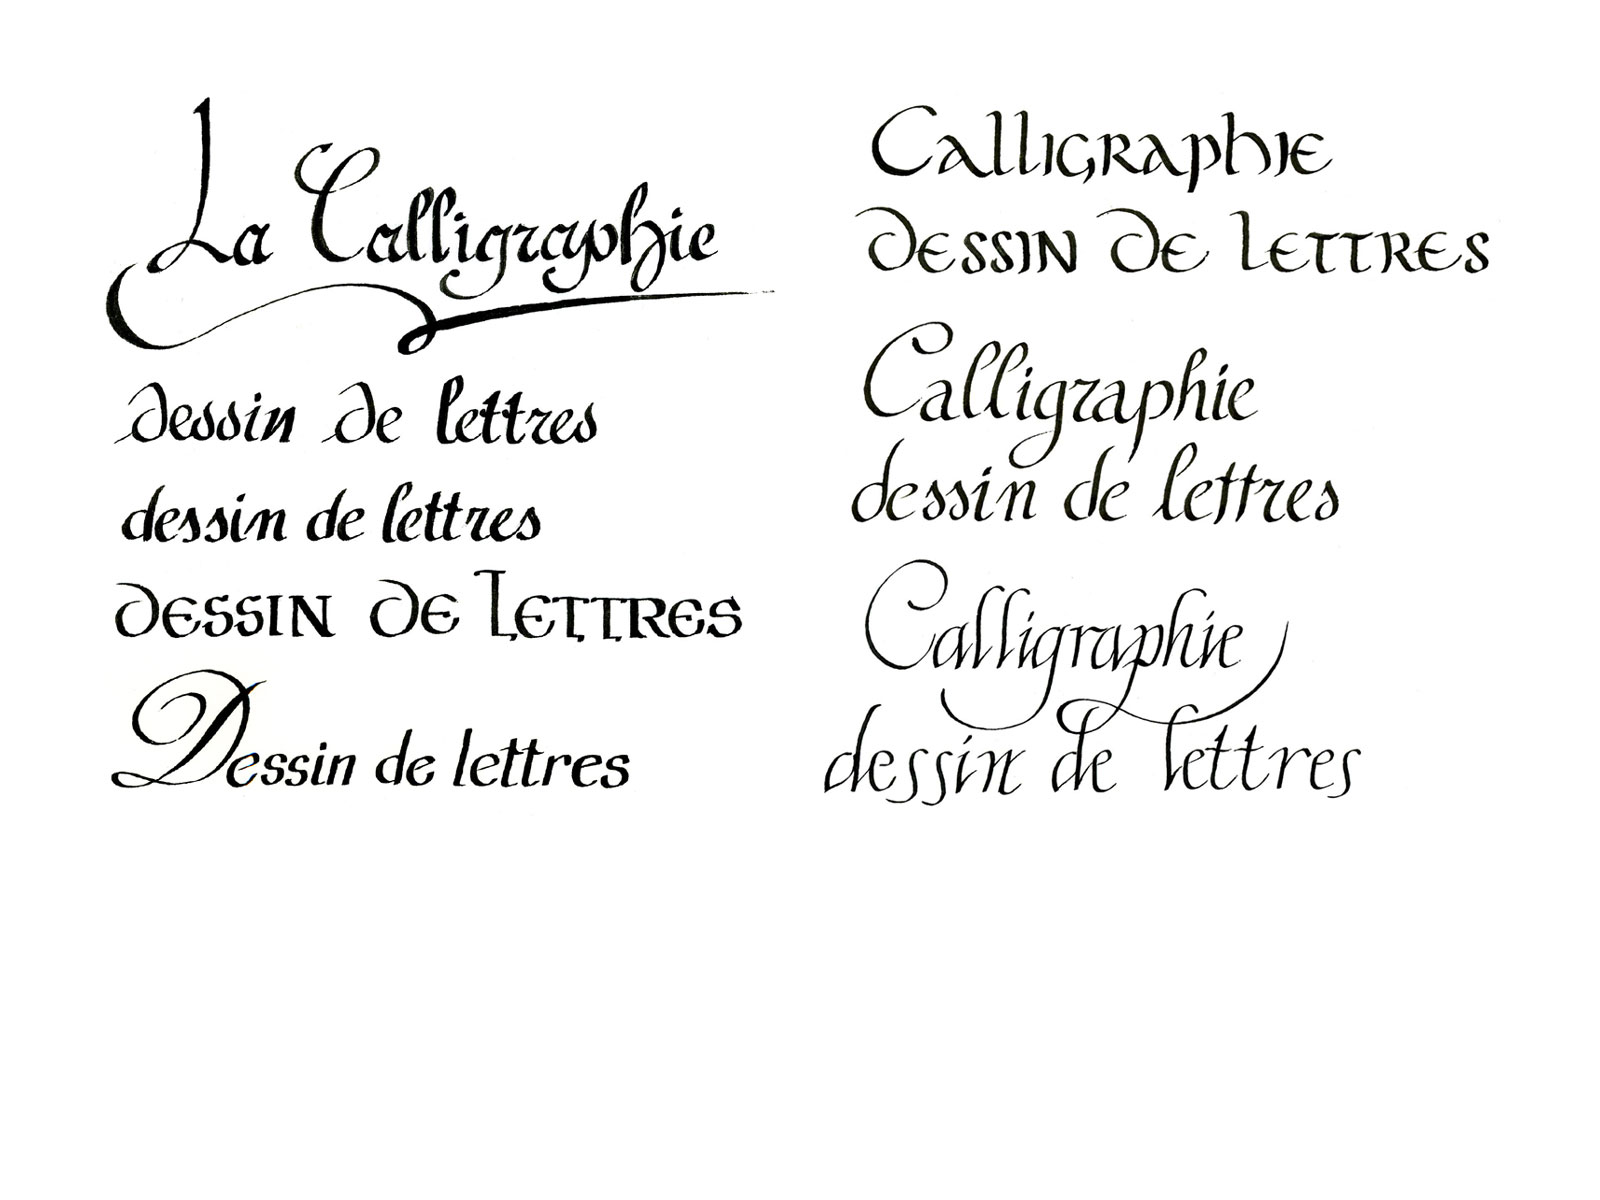 La Calligraphie
dessin de lettres
dessin de lettres
DESSIN DE LETTRES
Dessin de lettres
Calligraphie
DESSIN DE LETTRES
Calligraphie
dessin de lettres
Calligraphie
dessin de lettres